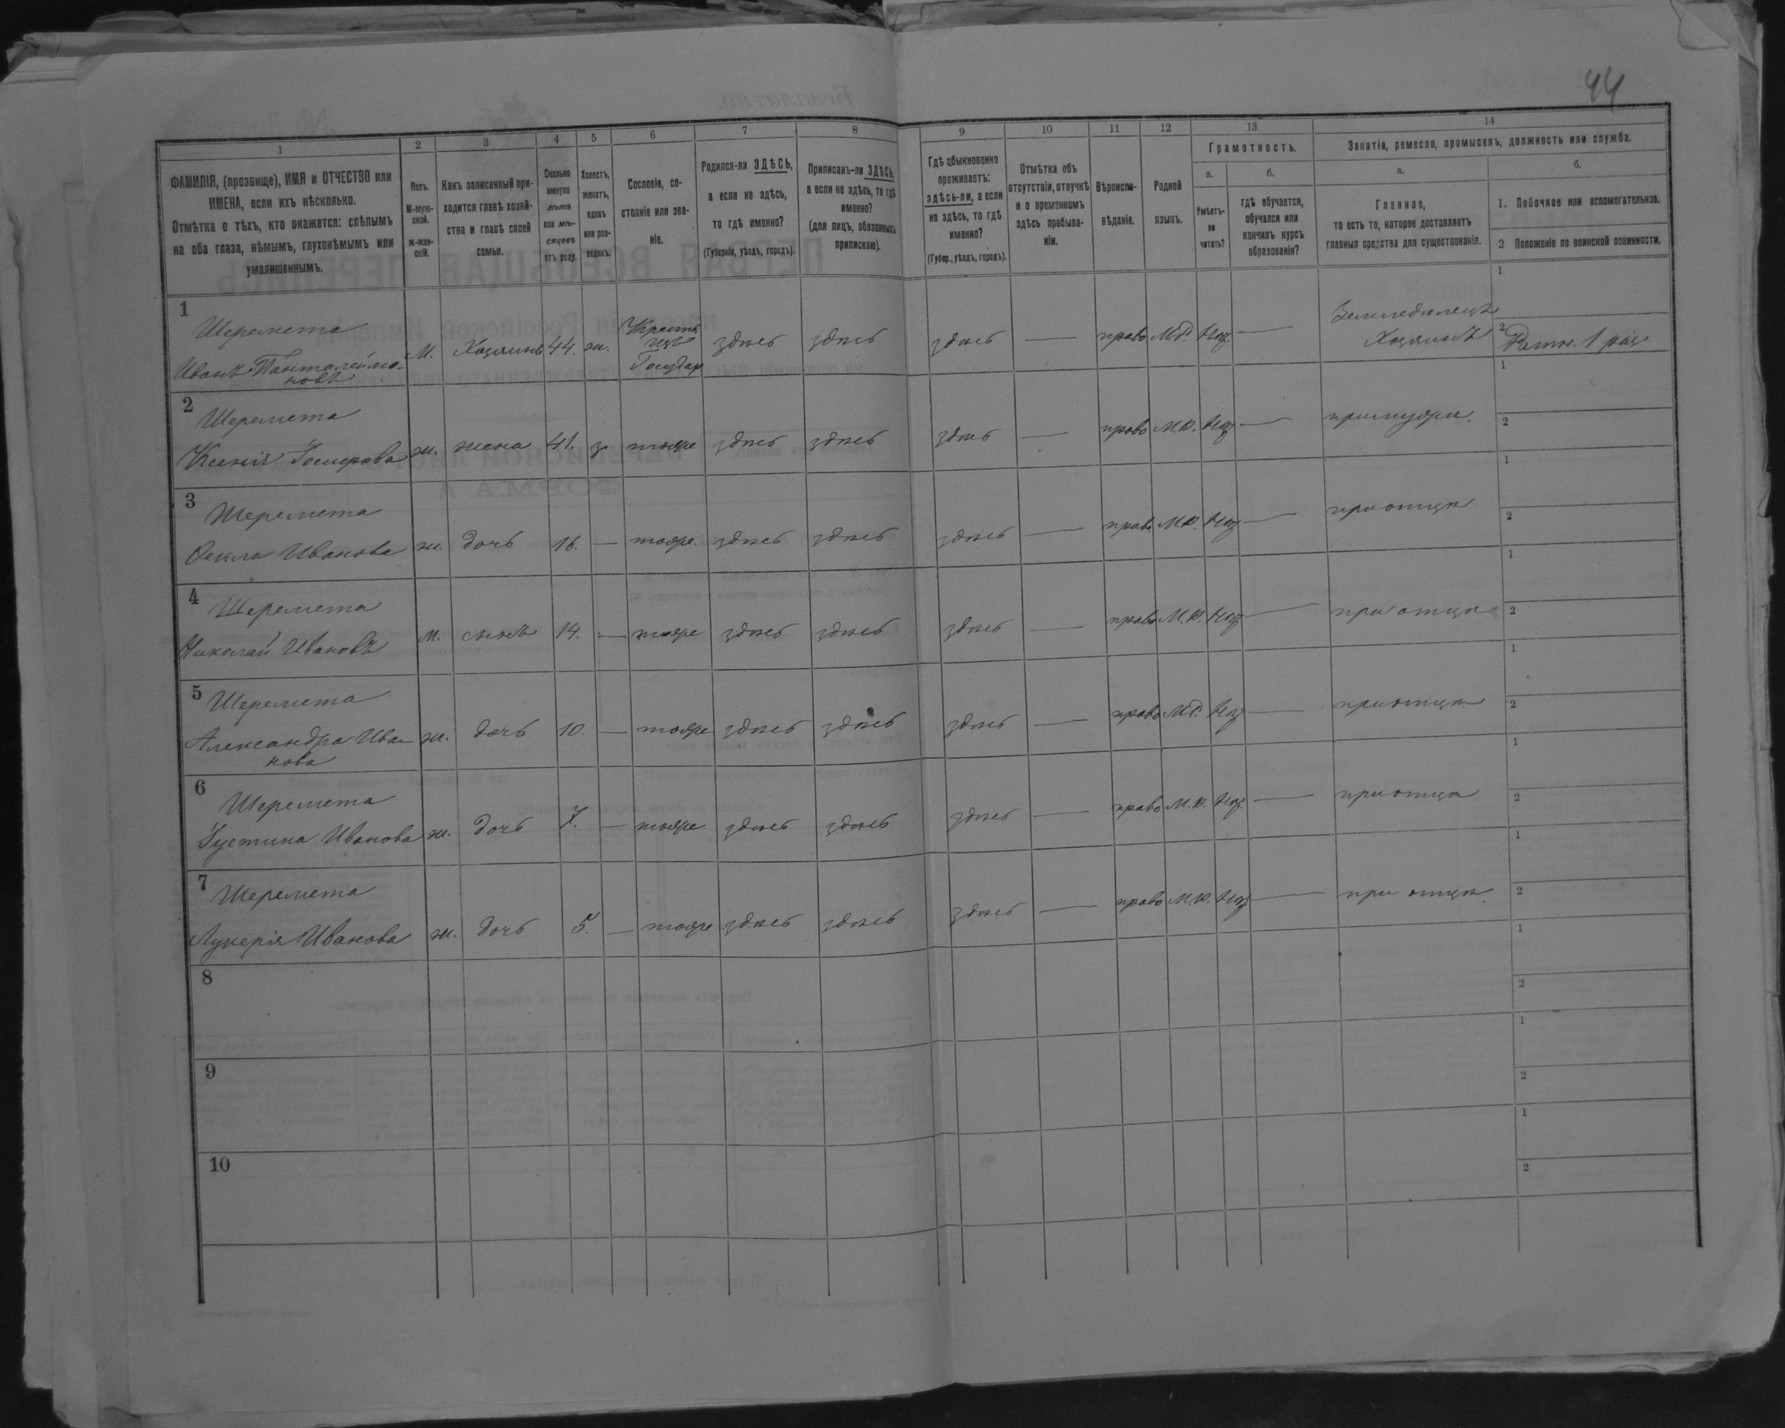 44
1 2 3 4 5 6 7 8 9 10 11 12 13 14
ФАМИЛІЯ, (прозвище), ИМЯ и ОТЧЕСТВО или
ИМЕНА, если ихъ нѣсколько.
Отмѣтка о тѣхъ, кто окажется: слѣпымъ
на оба глаза, нѣмымъ, глухонѣмымъ или
умалишеннымъ.
Полъ.
М-муж-
ской.
ж-жен-
скій.
Какъ записанный при-
ходится главѣ хозяй-
ства и главѣ своей
семьи.
Сколько
минуло
лѣтъ
или мѣ-
сяцевъ
отъ роду.
Холостъ,
женатъ,
вдовъ
или раз-
веденъ.
Сословіе, со-
стояніе или зва-
ніе.
Родился-ли ЗДѢСЬ,
а если не здѣсь,
то гдѣ именно?
(Губернія, уѣздъ, городъ).
Приписанъ-ли ЗДѢСЬ,
а если не здѣсь, то гдѣ
именно?
(для лицъ, обязанныхъ
припискою).
Гдѣ обыкновенно
проживаетъ:
здѣсь-ли, а если
не здѣсь, то гдѣ
именно?
(Губер., уѣздъ, городъ).
Отмѣтка объ
отсутствіи, отлучкѣ
и о временномъ
здѣсь пребыва-
ніи.
Вѣроиспо-
вѣданіе.
Родной
языкъ.
Грамотность.
а.
Умѣетъ-
ли
читать?
б.
гдѣ обучается,
обучался или
кончилъ курсъ
образованія?
Занятіе, ремесло, промыселъ, должность или служба.
а.
Главное,
то есть то, которое доставляетъ
главныя средства для существованія.
б.
1. Побочное или вспомогательное.
2 Положеніе по воинской повинности.
1
Шеремета
Иванъ Панталеймо-
новъ
М. Хозяинъ 44. ж.
Крестья
изъ
Государ
здѣсь здѣсь здѣсь — право М.Р. Нѣт. —
Земледѣлецъ
Хозяинъ
1
2 Ратн. 1 раз.
2
Шеремета
Ксенія
ж. жена 41. з. тоже здѣсь здѣсь здѣсь — право М.Р. Нѣт —
1
2
3
Шеремета
Фекла Иванова ж. дочь 16. — тоже. здѣсь здѣсь здѣсь — право М.Р. Нѣт — при отцѣ
1
2
4
Шеремета
Николай Ивановъ М. сынъ 14. — тоже здѣсь здѣсь здѣсь — право М.Р. Нѣт — при отцѣ
1
2
5
Шеремета
Александра Ива-
нова
ж. дочь 10. — тоже здѣсь здѣсь здѣсь — право М.Р. Нѣт — при отцѣ
1
2
6
Шеремета
Густина Иванова ж. дочь 7. — тоже здѣсь здѣсь здѣсь — право М.Р. Нѣт. — при отцѣ
1
2
7
Шеремета
Лукерія Иванова ж. дочь 5. — тоже здѣсь здѣсь здѣсь — право М.Р. Нѣт — при отцѣ.
1
2
8
1
2
9
1
2
10
1
2